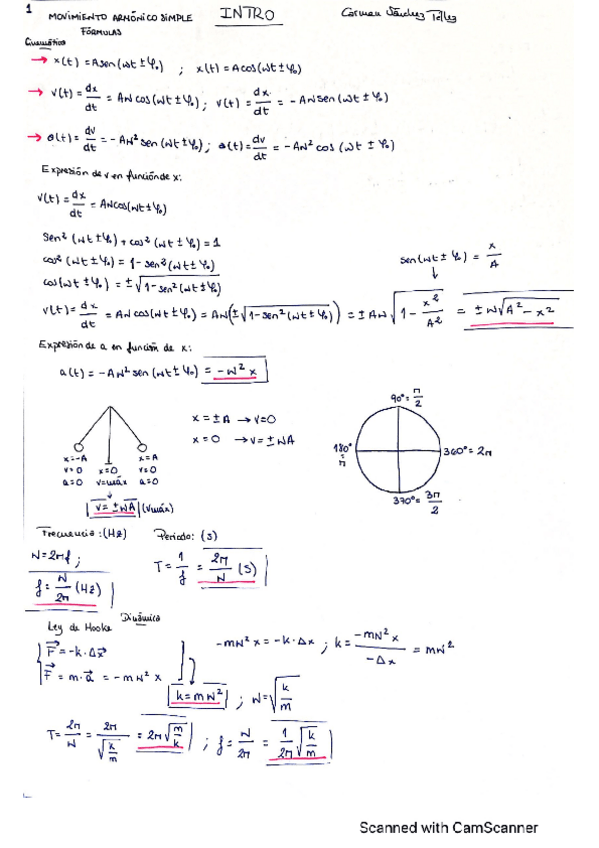 1 MOVIMIENTO ARMÓNICO SIMPLE INTRO Carmen Sánchez Tellez
FÓRMULAS
Cinemática
→ x(t) = A sen(ωt ± φ₀) ; x(t) = A cos(ωt ± φ₀)
→ v(t) = dx/dt = Aω cos(ωt ± φ₀) ; v(t) = dx/dt = -Aω sen(ωt ± φ₀)
→ a(t) = dv/dt = -Aω² sen(ωt ± φ₀) ; a(t) = dv/dt = -Aω² cos(ωt ± φ₀)
Expresión de v en función de x:
v(t) = dx/dt = Aω cos(ωt ± φ₀)
sen²(ωt ± φ₀) + cos²(ωt ± φ₀) = 1
cos²(ωt ± φ₀) = 1 - sen²(ωt ± φ₀)
sen(ωt ± φ₀) = x/A
cos(ωt ± φ₀) = ±√(1 - sen²(ωt ± φ₀))
↓
v(t) = dx/dt = Aω cos(ωt ± φ₀) = Aω(±√(1 - sen²(ωt ± φ₀))) = ±Aω√(1 - x²/A²) = ±ω√(A² - x²)
Expresión de a en función de x:
a(t) = -Aω² sen(ωt ± φ₀) = -ω² x
x = ±A → v=0
x = 0 → v = ±ωA
x=-A x=0 x=A
v=0 v=máx v=0
a=0 a=0
↓
v = ±ωA (vmáx)
90° = π/2
180° = π
360° = 2π
370° = 3π/2
Frecuencia: (Hz) Periodo: (s)
ω = 2πf ;
f = ω/2π (Hz)
T = 1/f = 2π/ω (s)
Dinámica
Ley de Hooke
F = -k · Δx
F = m · a = -mω² x
-mω² x = -k · Δx ; k = -mω² x/-Δx = mω²
k = mω² ; ω = √(k/m)
T = 2π/ω = 2π/√(k/m) = 2π√(m/k) ; f = ω/2π = 1/2π √(k/m)
Scanned with CamScanner